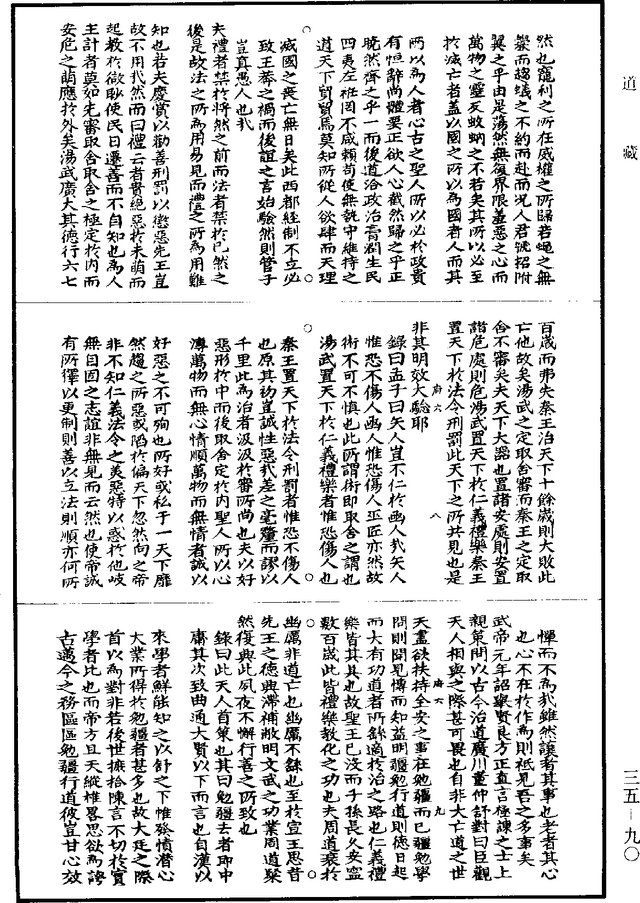 道藏
然也寵利之所在威權之所歸若蠅之無
翼而趨蟻之不約而赴而况人君號招附
翼之乎由是蕩然無復界限羞惡之心而
萬物之靈反蚊蚋之不若矣其所以必至
於滅亡者蓋以國之所以為國者人而其
所以為人者心古之聖人所以必於政貴
有恒辭尚體要正欲人心截然歸之乎正
曉然齊之乎一而後道洽政治膏潤生民
四夷左衽罔不咸賴苟使無說中維持之
道天下貿貿焉莫知所從人欲肆而天理
滅國之喪亡無日矣此西都經制不立必
致王莽之禍而後誼之言始驗然則管子
豈真愚人也哉
夫禮者禁於將然之前而法者禁於已然之
後是故法之所為用易見而禮之所為用難
知也若夫慶賞以勸善刑罰以懲惡先王豈
故不用哉然而曰禮云者貴絕惡於未萌而
起教於微眇使民日遷善而不自知也為人
主計者莫如先審取舍取舍之極定於內而
安危之萌應於外矣湯武廣大其德行六七
百歲而弗失秦王治天下十餘歲則大敗此
亡他故矣湯武之定取舍審而秦王之定取
舍不審矣夫天下大器也置諸安處則安置
諸危處則危湯武置天下於仁義禮樂秦王
置天下於法令刑罰此天下之所共見也是
非其明效大驗耶
錄曰孟子曰矢人豈不仁於函人哉矢人
惟恐不傷人函人惟恐傷人巫匠亦然故
術不可不慎也此所謂術即取舍之謂也
湯武置天下於仁義禮樂者惟恐傷人也
秦王置天下於法令刑罰者惟恐不傷人
也原其初豈誠性惡哉差之毫釐而謬以
千里此為治者汲汲於審所尚也夫以好
惡形於中而後取舍定於內聖人所以心
溥萬物而無心情順萬物而無情者誠以
好惡之不可殉也所好或私于一天下靡
然趨之所惡或陷於偏天下忽然向之帝
非不知仁義法令之美惡特以惑於他岐
無自固之志誼非無見而云然也使帝誠
有所懌以更制則善以立法則順亦何所
府六
八
憚而不為哉雖然讓者其事也老者其心
也心不在於作為則祇見吾之多事矣
武帝元年詔舉賢良方正直言極諫之士上
親策問以古今治道廣川董仲舒對曰臣觀
天人相與之際甚可畏也自非大亡道之世
天盡欲扶持全安之事在勉疆而已疆勉學
問則聞見博而知益明疆勉行道則德日起
而大有功道者所繇適於治之路也仁義禮
樂皆其具也故聖王已沒而子孫長久安寧
數百歲此皆禮樂教化之功也夫周道衰於
幽厲非道亡也幽厲不繇也至於宣王思昔
先王之德興滯補敝明文武之功業周道粲
然復興此夙夜不懈行善之所致也
錄曰此天人首策也其曰勉疆去者即中
庸其次致曲通大賢以下而言也自漢以
來學者鮮能知之以舒之下惟發憤潛心
大業所得於勉疆者甚多也故大廷之際
首以為對非若後世摭拾陳言不切於實
學者比也而帝方且天縱惟畧思欲為誇
古邁今之務區區勉疆行道彼豈甘心效
府六
九
三五－九〇